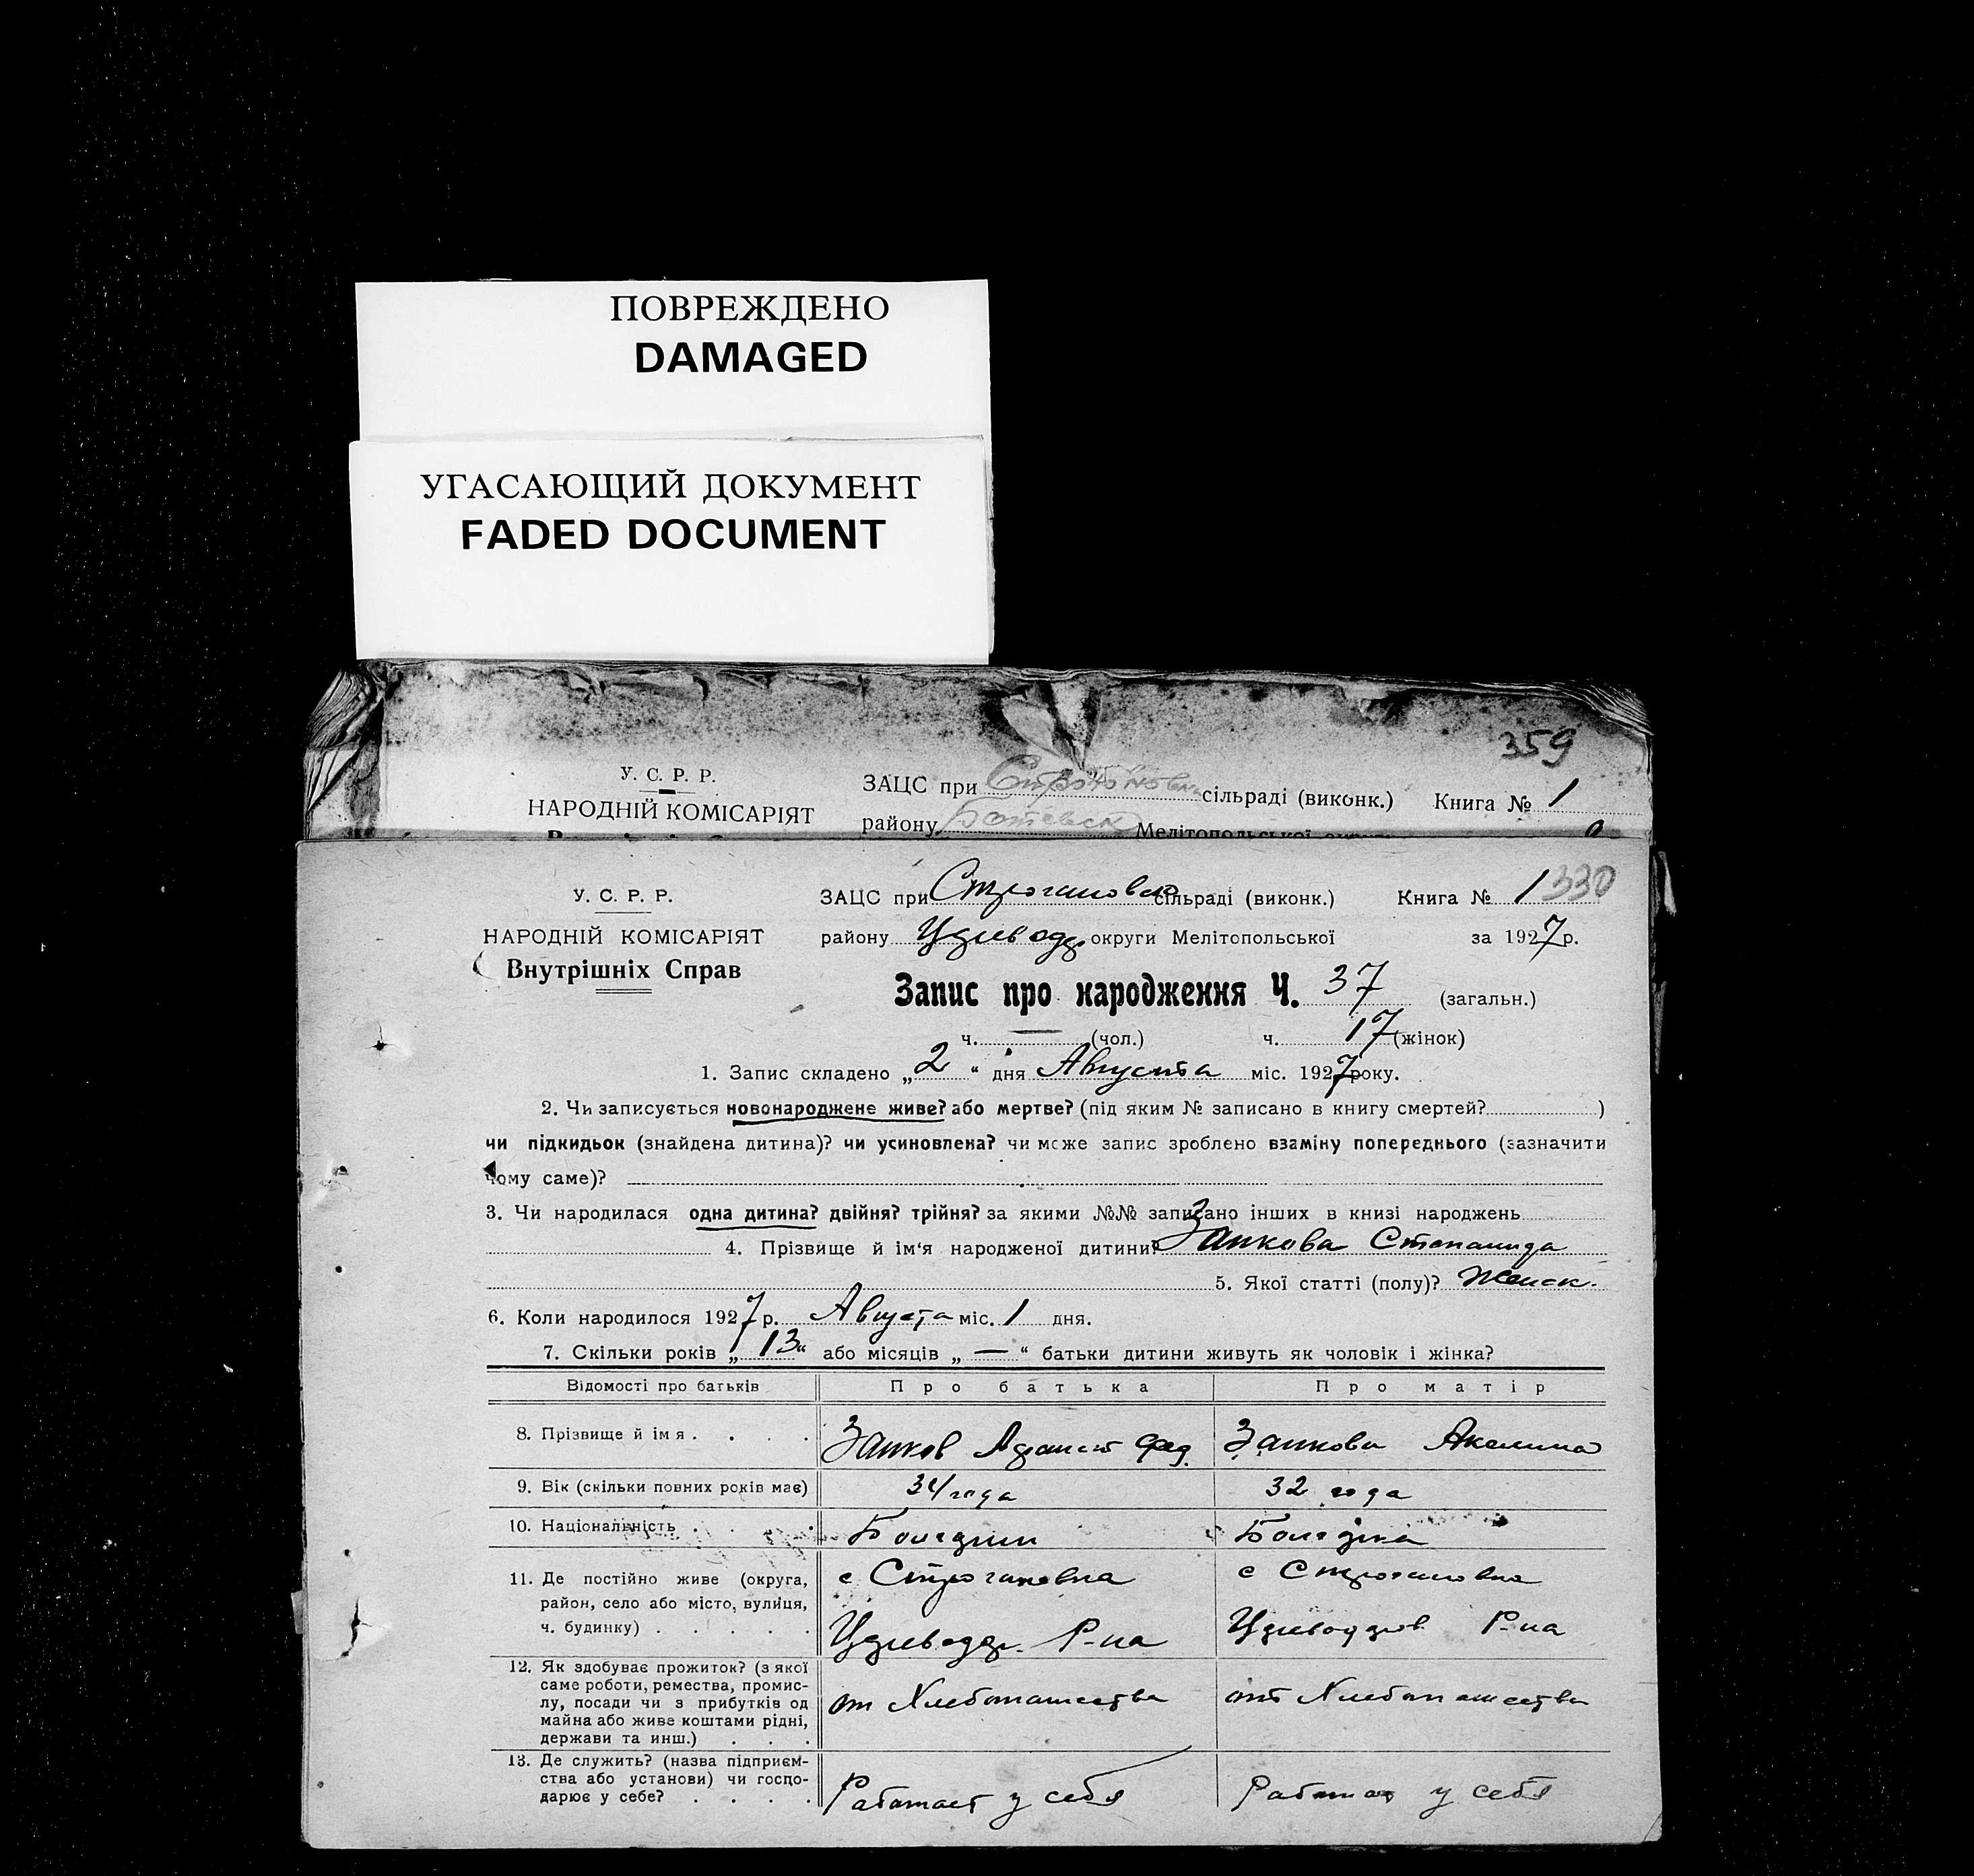 ПОВРЕЖДЕНО
DAMAGED
УГАСАЮЩИЙ ДОКУМЕНТ
FADED DOCUMENT
359
У. С. Р. Р.
НАРОДНІЙ КОМІСАРІЯТ
ЗАЦС при сільраді (виконк.) Книга № 1
району Ботевск Мелітопольської
У. С. Р. Р.
НАРОДНІЙ КОМІСАРІЯТ
Внутрішніх Справ
ЗАЦС при Строгановск сільраді (виконк.) Книга № 1 330
району округи Мелітопольської за 1927 р.
Запис про народження Ч. 37 (загальн.)
ч. — (чол.) ч. 17 (жінок)
1. Запис складено „ 2 “ дня Августа міс. 1927 року.
2. Чи записується новонароджене живе? або мертве? (під яким № записано в книгу смертей? )
чи підкидьок (знайдена дитина)? чи усиновлена? чи може запис зроблено взаміну попереднього (зазначити
чому саме)?
3. Чи народилася одна дитина? двійня? трійня? за якими №№ записано інших в книзі народжень
4. Прізвище й ім'я народженої дитини? Запкова Степанида
5. Якої статті (полу)? Женск.
6. Коли народилося 1927 р. Августа міс. 1 дня.
7. Скільки років „ 13 “ або місяців „ — “ батьки дитини живуть як чоловік і жінка?
Відомості про батьків Про батька Про матір
8. Прізвище й імя . . . . Запков Фед. Запкова Акелина
9. Вік (скільки повних років має) 34 года 32 года
10. Національність . . . . Болгарин Болгарка
11. Де постійно живе (округа,
район, село або місто, вулиця,
ч. будинку) . . . . .
с Строгановка
Р-на
с Строгановка
Р-на
12. Як здобуває прожиток? (з якої
саме роботи, ремества, промис-
лу, посади чи з прибутків од
майна або живе коштами рідні,
держави та инш.) . . .
от Хлебопашества
от Хлебопашества
13. Де служить? (назва підприєм-
ства або установи) чи госпо-
дарює у себе? . . . .
Работает у себя
Работает у себя